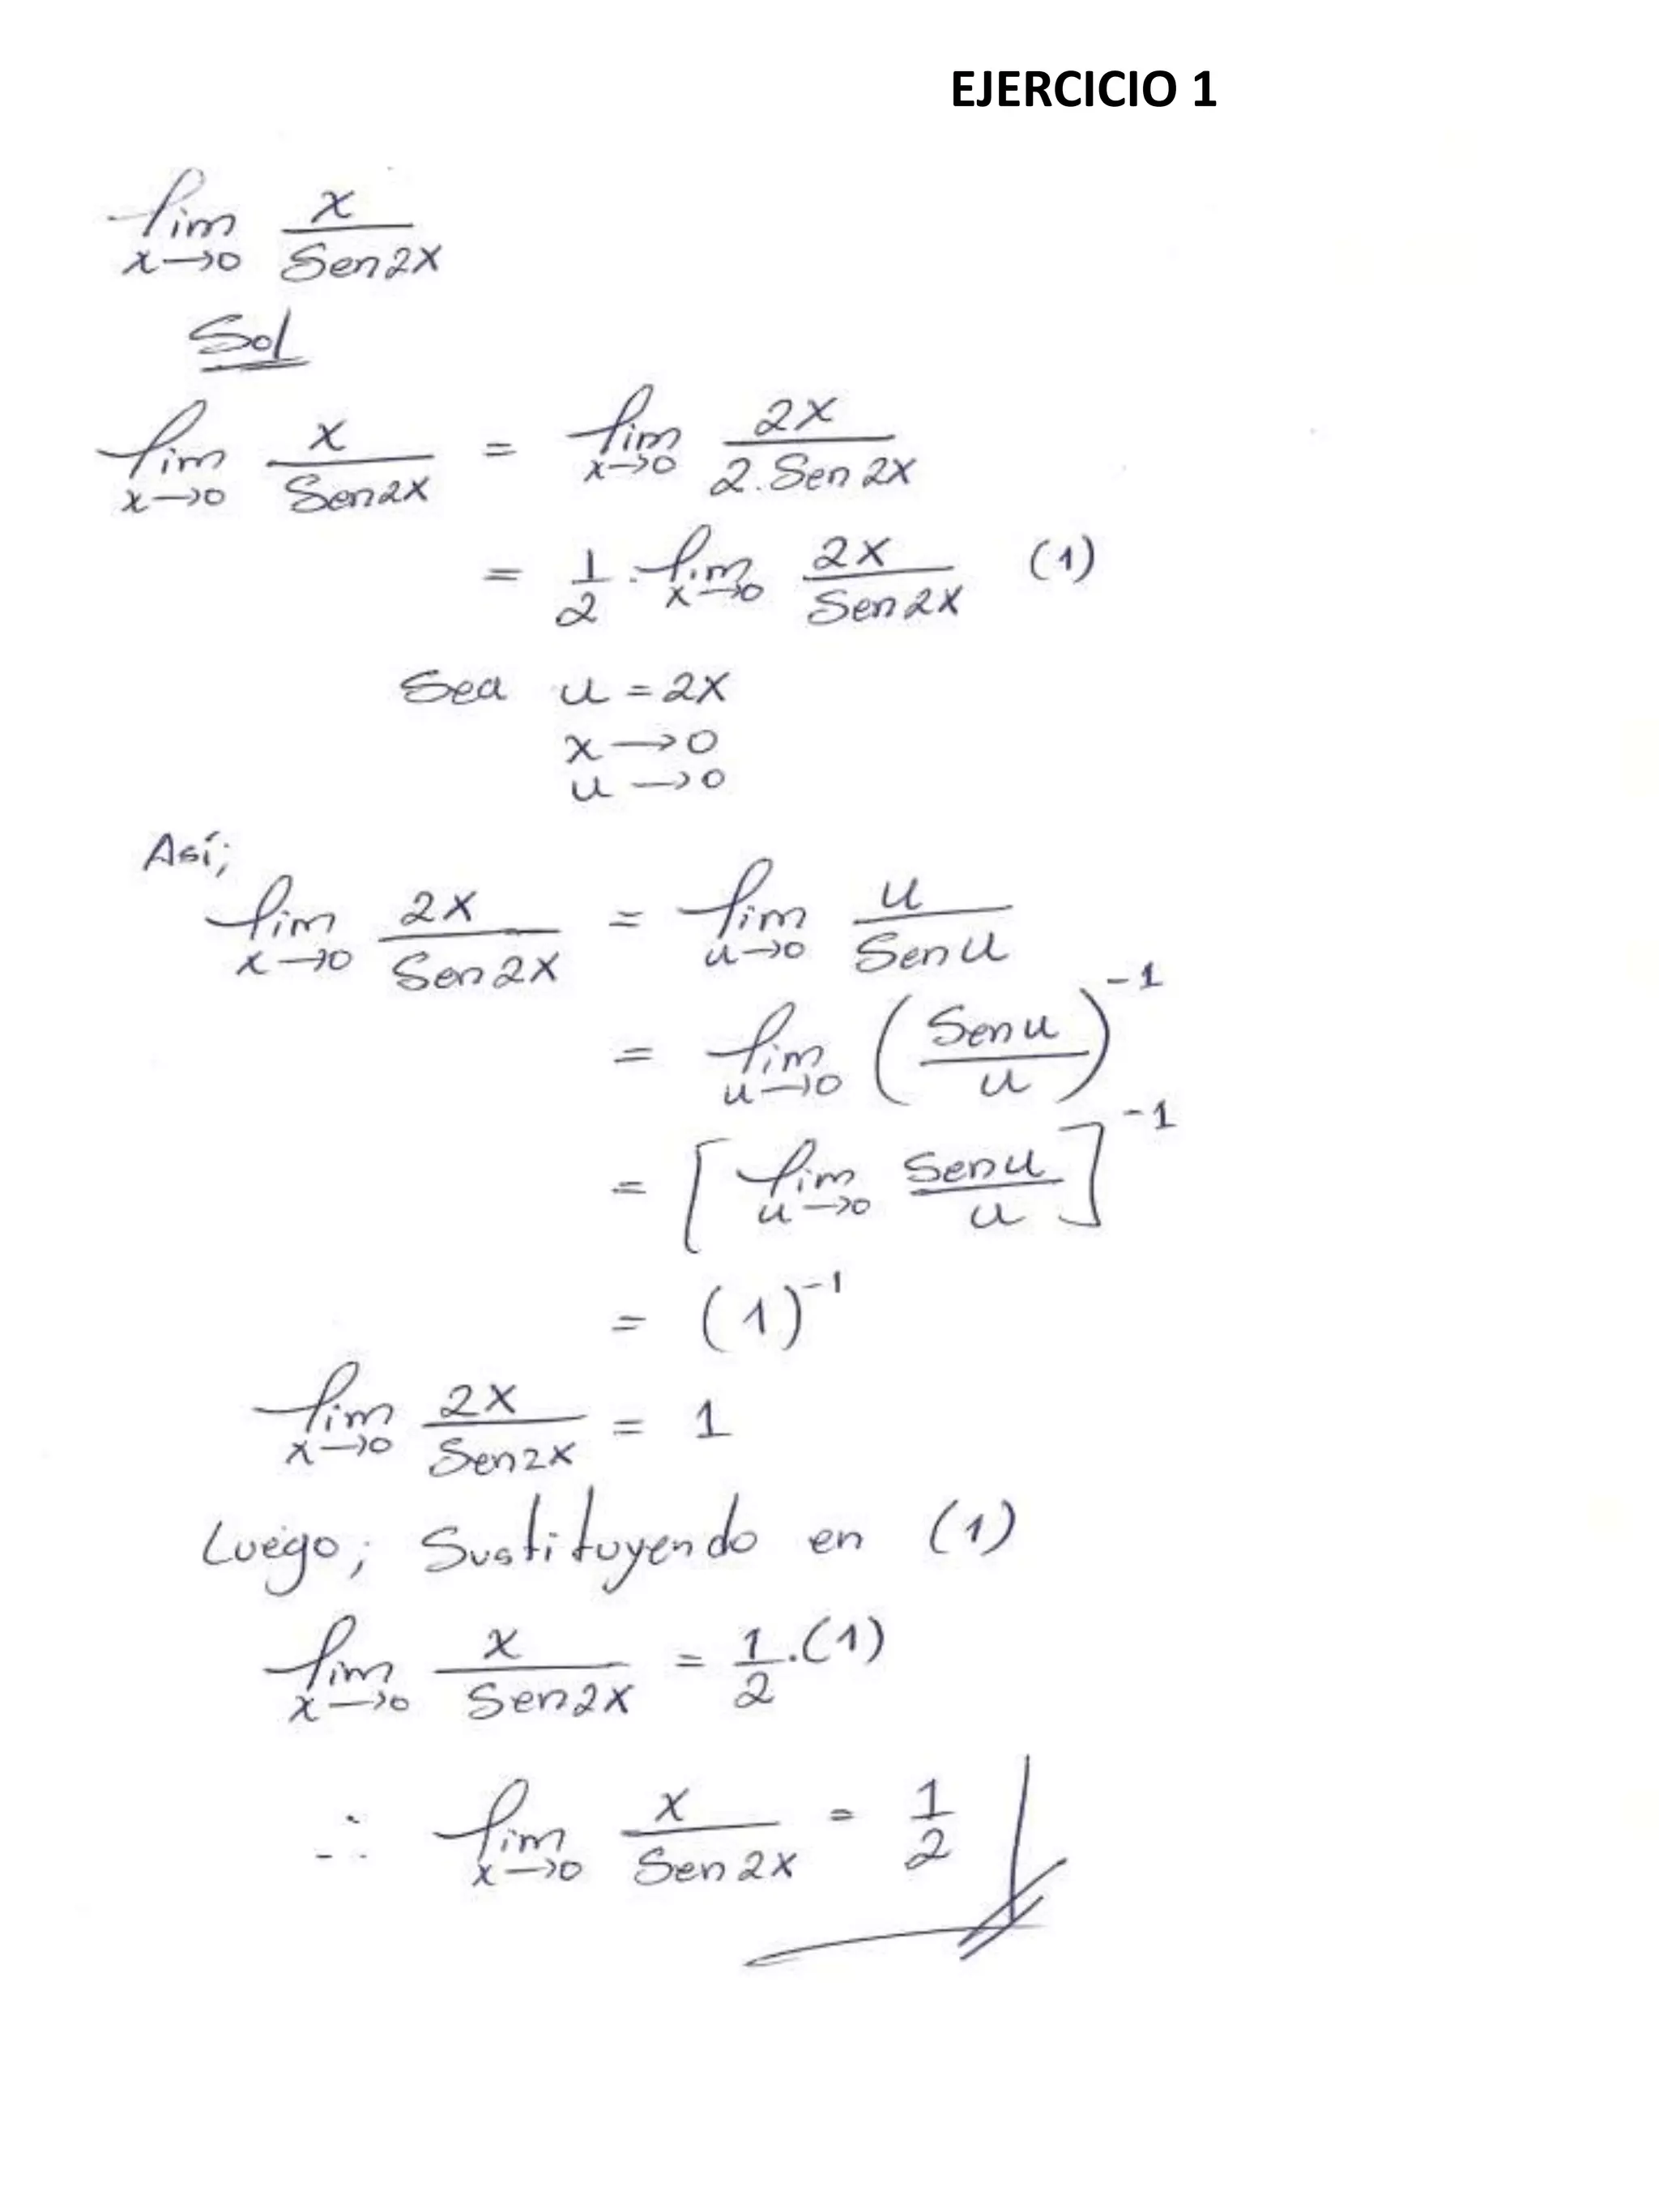 EJERCICIO 1
lim x→0 x / Sen2x
Sol
lim x→0 x / Sen2x = lim x→0 2x / 2.Sen2x
= 1/2 . lim x→0 2x / Sen2x (1)
Sea u = 2x
x → 0
u → 0
Así;
lim x→0 2x / Sen2x = lim u→0 u / Sen u
= lim u→0 (Sen u / u)^-1
= [lim u→0 Sen u / u]^-1
= (1)^-1
lim x→0 2x / Sen2x = 1
Luego; Sustituyendo en (1)
lim x→0 x / Sen2x = 1/2 . (1)
∴ lim x→0 x / Sen2x = 1/2